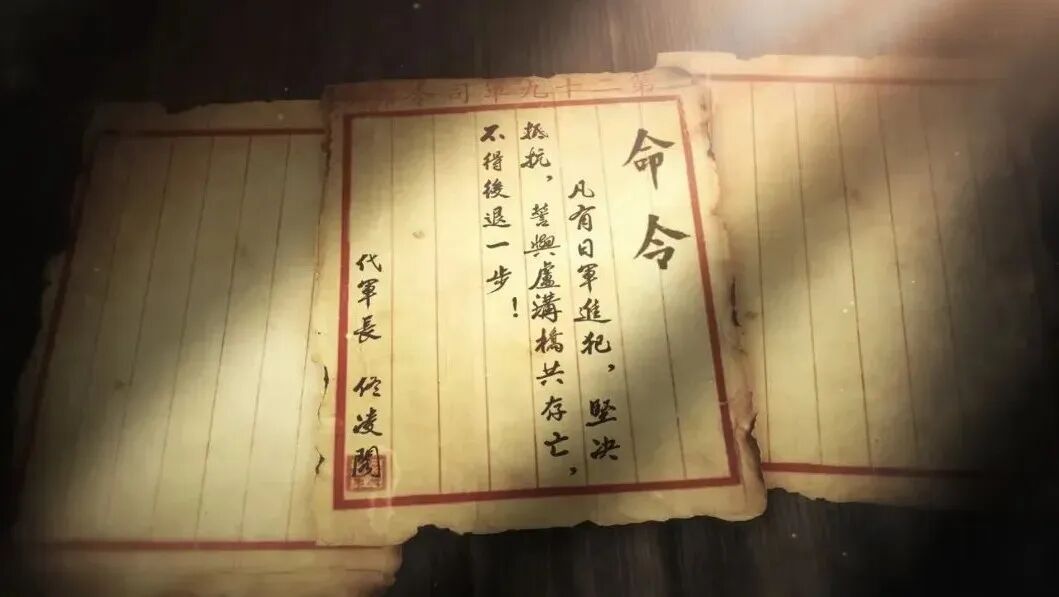 第二十九軍司令部
命令
凡有日軍進犯，堅决
抵抗，誓與盧溝橋共存亡，
不得後退一步！
代軍長 佟凌閣